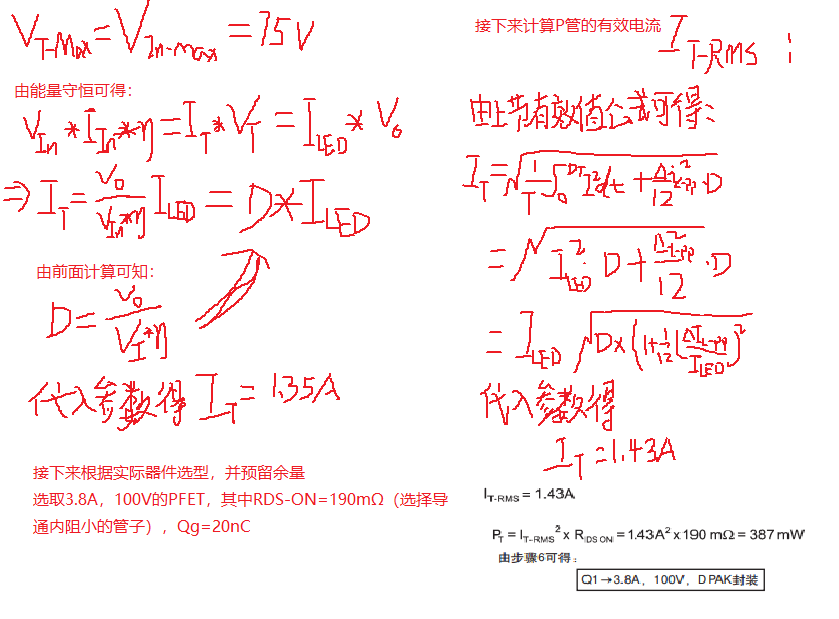 V_{T-Max} = V_{In-max} = 75V
由能量守恒可得:
V_{In} * I_{In} * η = I_T * V_T = I_{LED} * V_o
⇒ I_T = \frac{V_o}{V_{In}*η} I_{LED} = D * I_{LED}
由前面计算可知:
D = \frac{V_o}{V_I*η}
代入参数得 I_T = 1.35A
接下来根据实际器件选型,并预留余量
选取3.8A,100V的PFET,其中RDS-ON=190mΩ(选择导
通内阻小的管子),Qg=20nC
接下来计算P管的有效电流 I_{T-RMS} :
由上节有效值公式可得:
I_T = \sqrt{\frac{1}{T} \int_0^{DT} I^2 dt + \frac{Δi_{L-pp}^2}{12} · D}
= \sqrt{I_{LED}^2 · D + \frac{Δ_{L-pp}^2}{12} · D}
= I_{LED} \sqrt{D × (1 + \frac{1}{12} (\frac{ΔI_{L-pp}}{I_{LED}})^2}
代入参数得
I_T = 1.43A
I_{T-RMS} = 1.43A
P_T = I_{T-RMS}^2 x R_{(DS ON)} = 1.43A^2 x 190 mΩ = 387 mW
由步骤6可得:
Q1→3.8A,100V,DPAK封装